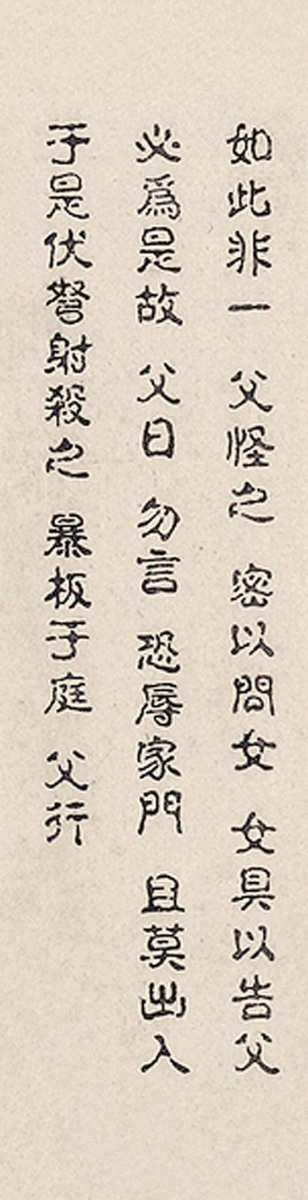 如此非一 父怪之 密以問女 女具以告父
必為是故 父曰 勿言 恐辱家門 且莫出入
于是伏弩射殺之 暴板于庭 父行